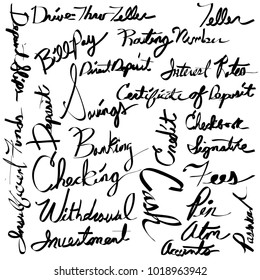 Drive-Thru Teller
Teller
Deposit Slip
Bill Pay
Routing Number
Direct Deposit
Interest Rates
Certificate of Deposit
Savings
Deposits
Insufficient Funds
Banking
Credit
Checkbook
Signature
Checking
Cash
Fees
Withdrawal
Pin
Investment
Atm
Accounts
Passbook
shutterstock.com · 1018963942